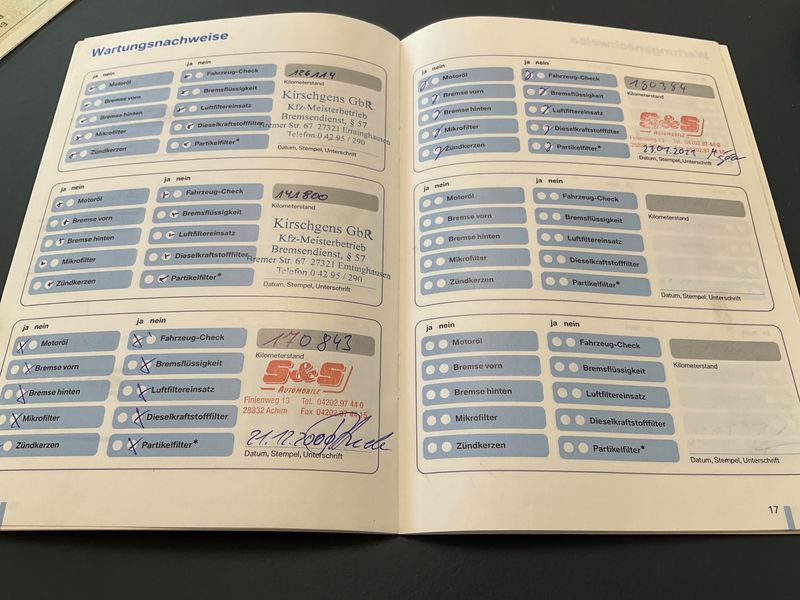 Wartungsnachweise
ja nein ja nein
Motoröl Fahrzeug-Check 126114
Kilometerstand
Bremse vorn Bremsflüssigkeit Kirschgens GbR
Bremse hinten Luftfiltereinsatz Kfz-Meisterbetrieb
Bremsendienst, § 57
Mikrofilter Dieselkraftstofffilter Bremer Str. 67 27321 Emtinghausen
Telefon 0 42 95 / 290
Zündkerzen Partikelfilter*
Datum, Stempel, Unterschrift
ja nein ja nein
Motoröl Fahrzeug-Check 141800
Kilometerstand
Bremse vorn Bremsflüssigkeit Kirschgens GbR
Bremse hinten Luftfiltereinsatz Kfz-Meisterbetrieb
Bremsendienst, § 57
Mikrofilter Dieselkraftstofffilter Bremer Str. 67 27321 Emtinghausen
Telefon 0 42 95 / 290
Zündkerzen Partikelfilter*
Datum, Stempel, Unterschrift
ja nein ja nein
Motoröl Fahrzeug-Check 170 843
Kilometerstand
Bremse vorn Bremsflüssigkeit S&S
AUTOMOBILE
Bremse hinten Luftfiltereinsatz Finienweg 13 Tel. 04202.97 44 0
Mikrofilter Dieselkraftstofffilter 28832 Achim Fax 04202.97 44 18
Zündkerzen Partikelfilter*
Datum, Stempel, Unterschrift
ja nein ja nein
Motoröl Fahrzeug-Check 180384
Kilometerstand
Bremse vorn Bremsflüssigkeit
Bremse hinten Luftfiltereinsatz S&S
AUTOMOBILE
Mikrofilter Dieselkraftstofffilter Finienweg 13 Tel. 04202.97 44 0
Zündkerzen Partikelfilter* 23.07.2021
Datum, Stempel, Unterschrift
ja nein ja nein
Motoröl Fahrzeug-Check
Kilometerstand
Bremse vorn Bremsflüssigkeit
Bremse hinten Luftfiltereinsatz
Mikrofilter Dieselkraftstofffilter
Zündkerzen Partikelfilter*
Datum, Stempel, Unterschrift
ja nein ja nein
Motoröl Fahrzeug-Check
Kilometerstand
Bremse vorn Bremsflüssigkeit
Bremse hinten Luftfiltereinsatz
Mikrofilter Dieselkraftstofffilter
Zündkerzen Partikelfilter*
Datum, Stempel, Unterschrift
17